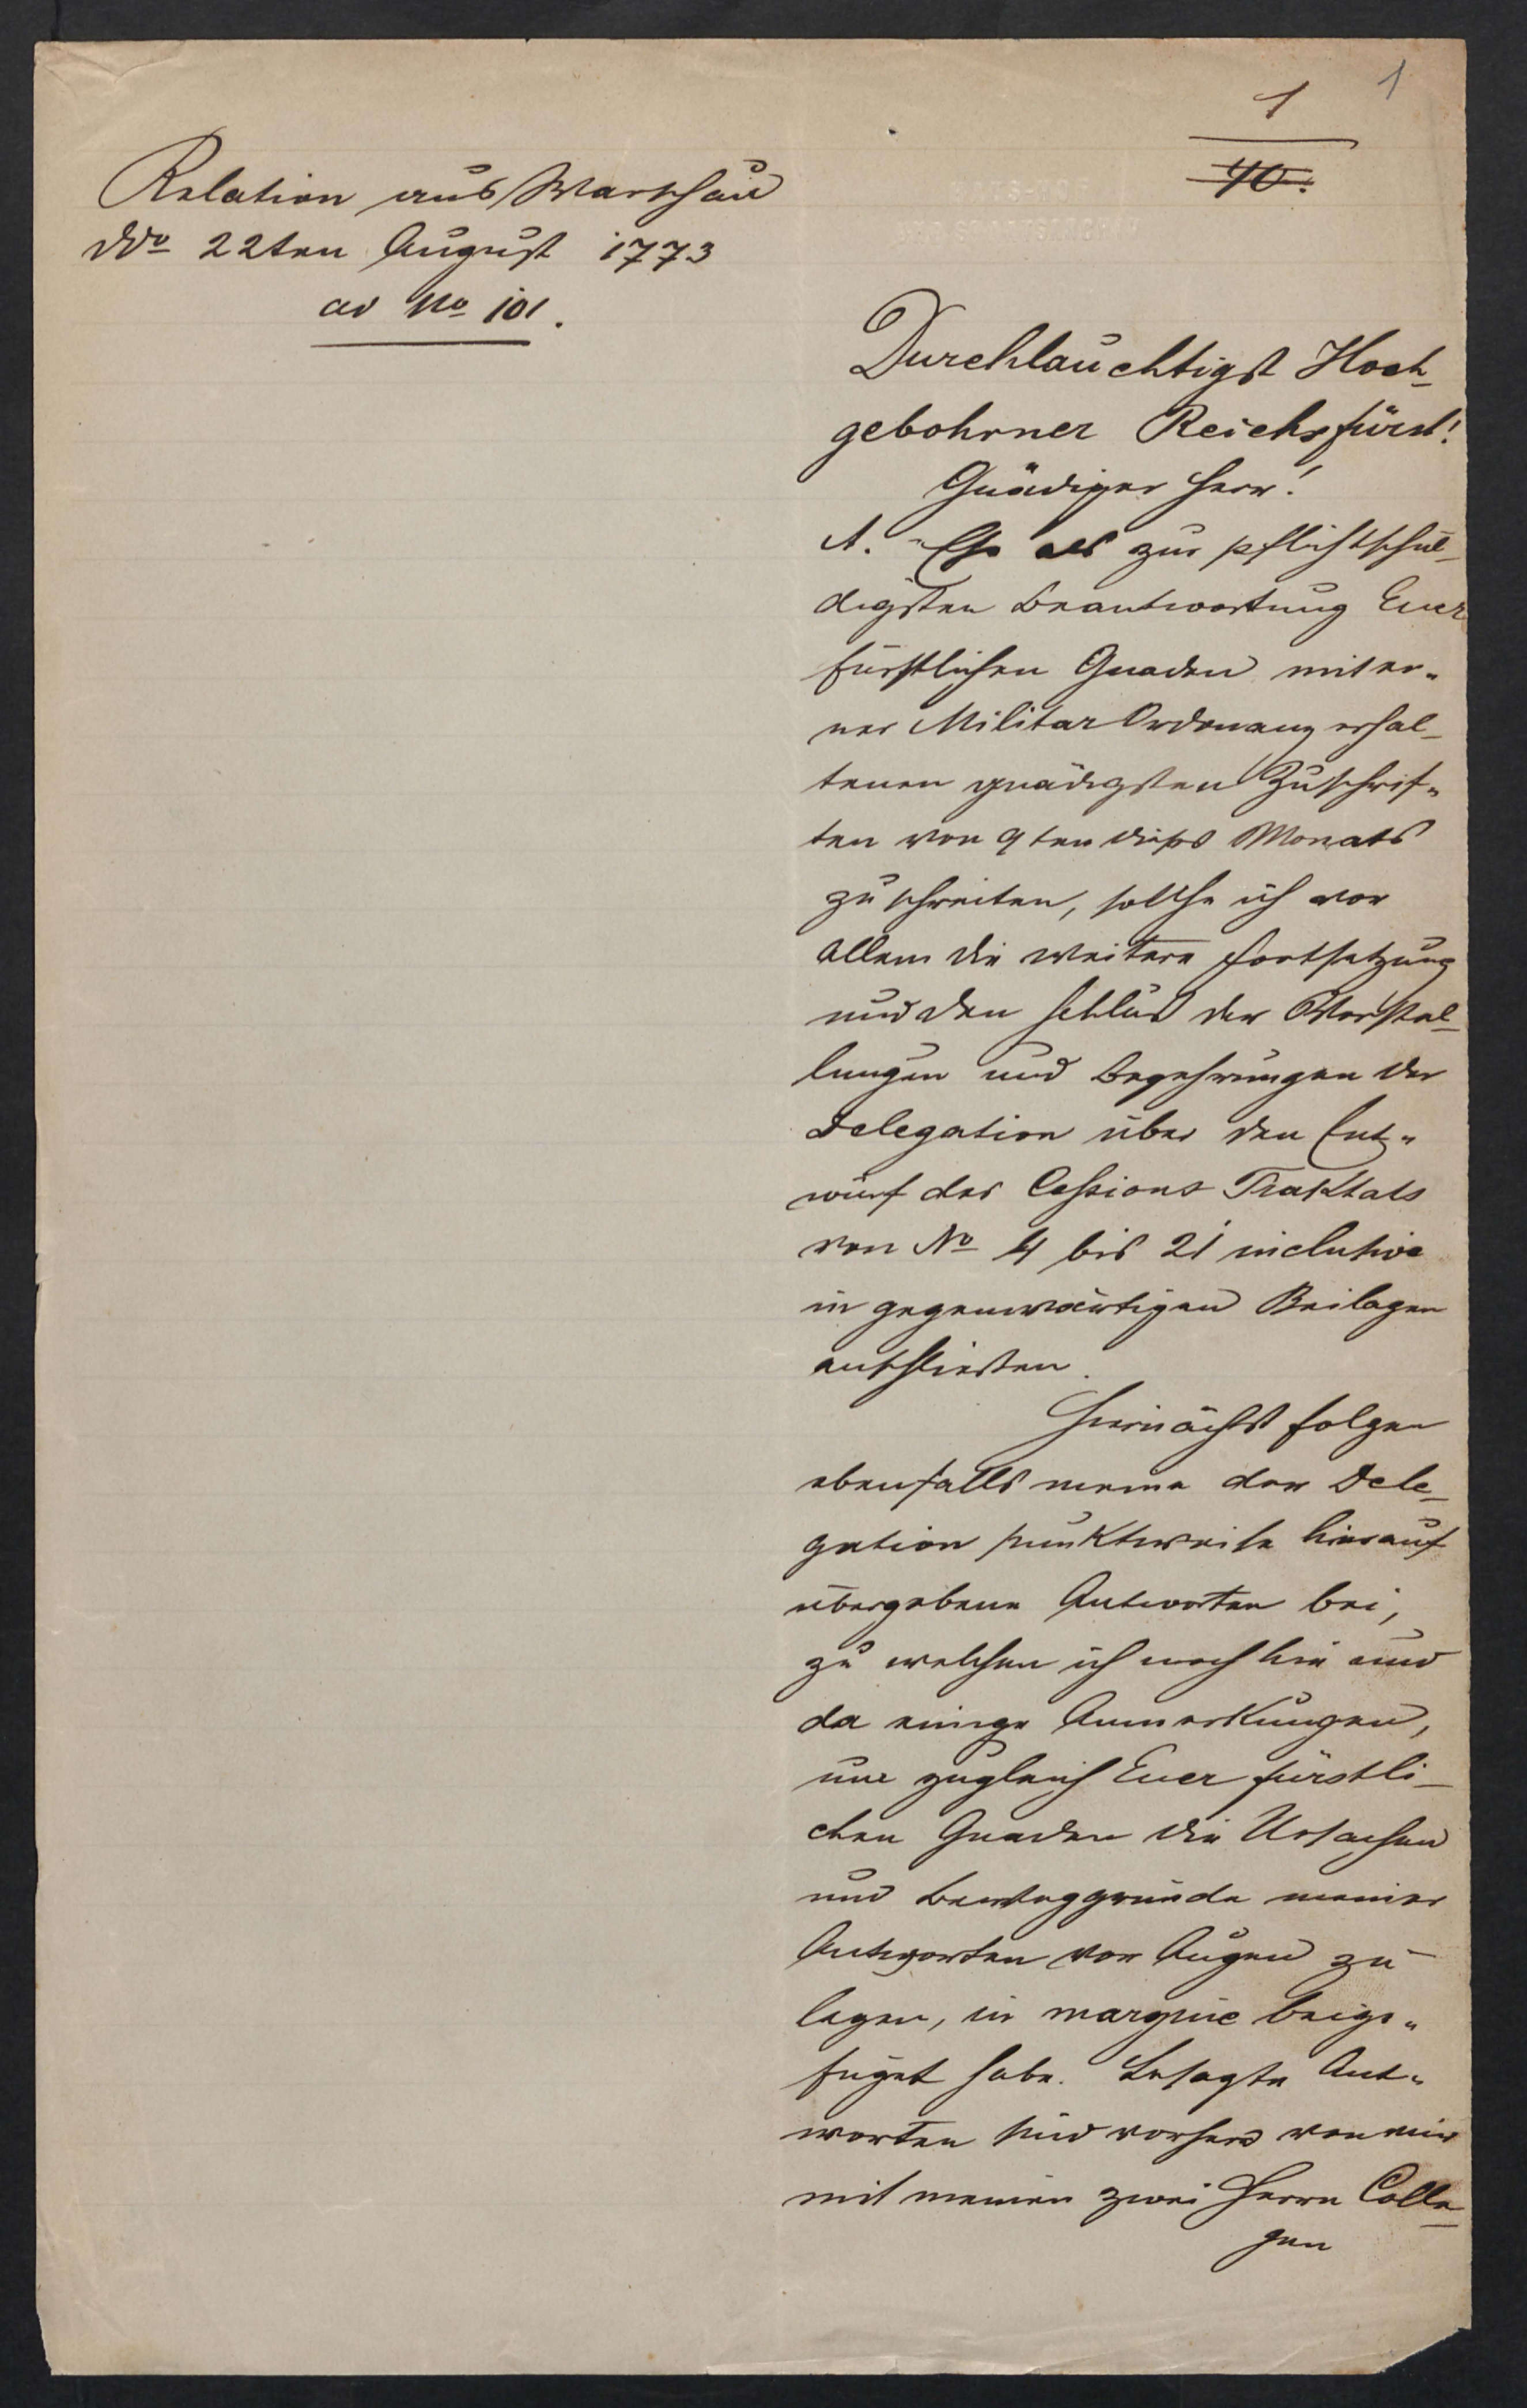 1
1
40.
Relation aus Warschau
ddo 22ten August 1773
ad No 101.
Durchlauchtigst Hoch-
gebohrner Reichsfürst!
Gnädiger Herr!
A. Ehe als zur pflichtschul-
digsten Beantwortung Euer
fürstlichen Gnaden mit ei-
ner Militar Ordonanz erhal-
tenen gnädigsten Zuschrif-
ten von 9ten dieses Monats
zu schreiten, sollte ich vor
allem die weitere Fortsetzung
und den Schluß der Vorstel-
lungen und Begehrungen der
Delegation über den Ent-
wurf des Cessions Traktats
von No 4 bis 21 inclusive
in gegenwärtigen Beilagen
anschließen.
Hiernächst folgen
ebenfalls meine der Dele-
gation punktweise hierauf
übergebene Antworten bei,
zu welchen ich noch hie und
da einige Anmerkungen,
um zugleich Euer fürstli-
chen Gnaden die Ursachen
und Beweggründe meiner
Antworten vor Augen zu
legen, in margine beige-
füget habe. Besagte Ant-
worten sind vorhero von mir
mit meinen zwei Herrn Colle-
gen